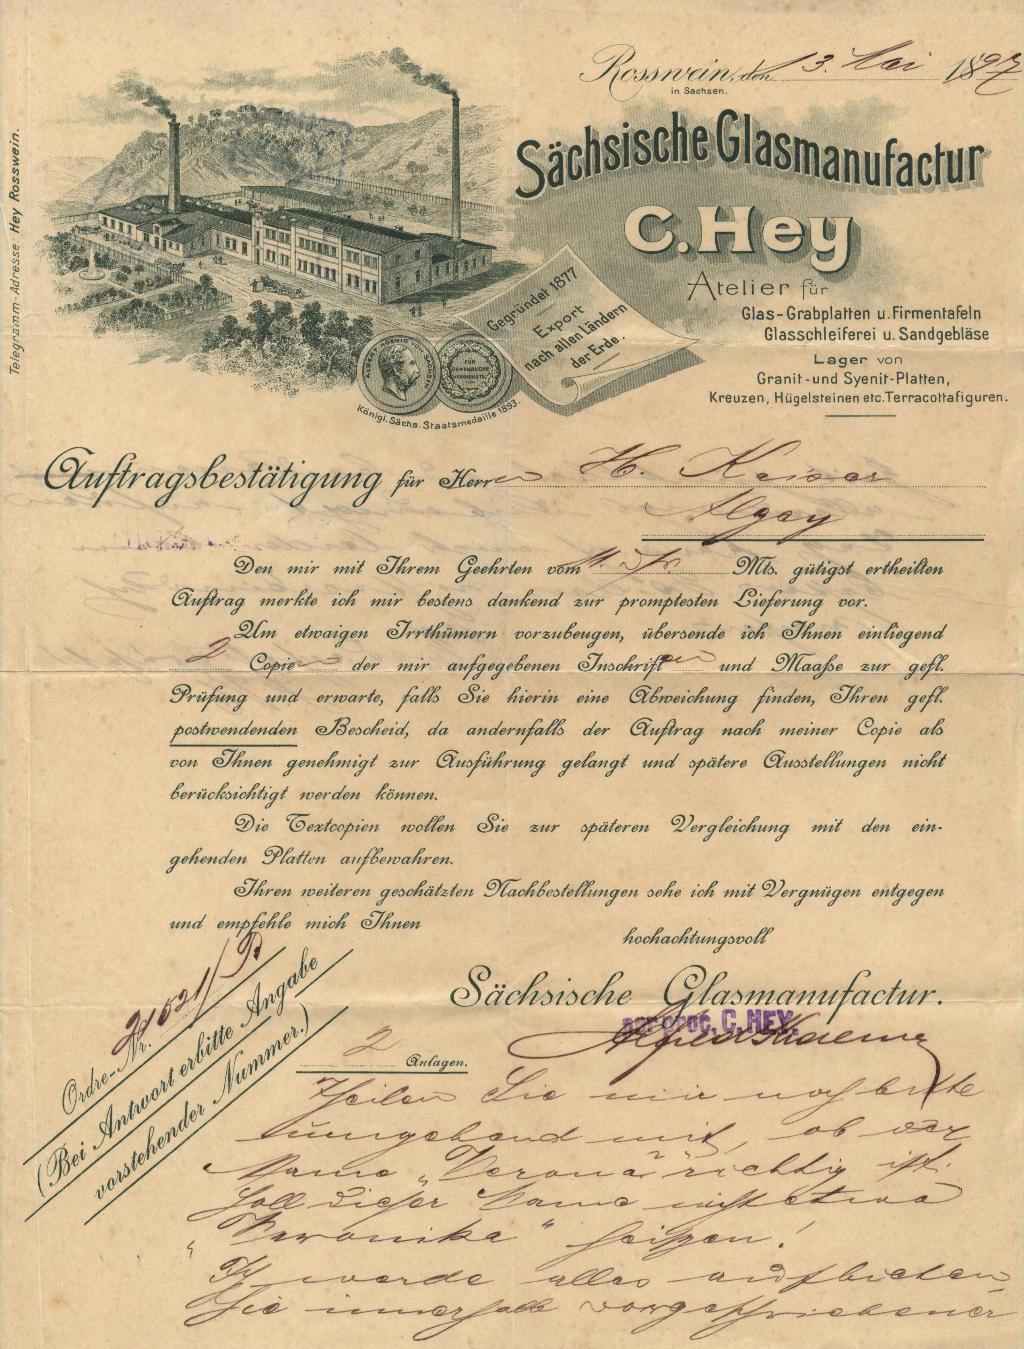 Rosswein, den 13. Mai 1897
in Sachsen.
Telegramm-Adresse: Hey Rosswein.
Sächsische Glasmanufactur
C. Hey
Atelier für
Glas-Grabplatten u. Firmentafeln
Glasschleiferei u. Sandgebläse
Lager von
Granit- und Syenit-Platten,
Kreuzen, Hügelsteinen etc. Terracottafiguren.
Gegründet 1877
Export
nach allen Ländern
der Erde.
ALBERT KOENIG VON SACHSEN
FÜR
GEWERBLICHE
VERDIENSTE
Königl. Sächs. Staatsmedaille 1893.
Auftragsbestätigung für Herrn H. Kaiser
Algay
Den mir mit Ihrem Geehrten vom 11. ds. Mts. gütigst ertheilten
Auftrag merkte ich mir bestens dankend zur promptesten Lieferung vor.
Um etwaigen Irrthümern vorzubeugen, übersende ich Ihnen einliegend
2 Copien der mir aufgegebenen Inschriften und Maaße zur gefl.
Prüfung und erwarte, falls Sie hierin eine Abweichung finden, Ihren gefl.
postwendenden Bescheid, da andernfalls der Auftrag nach meiner Copie als
von Ihnen genehmigt zur Ausführung gelangt und spätere Ausstellungen nicht
berücksichtigt werden können.
Die Textcopien wollen Sie zur späteren Vergleichung mit den ein-
gehenden Platten aufbewahren.
Ihren weiteren geschätzten Nachbestellungen sehe ich mit Vergnügen entgegen
und empfehle mich Ihnen
hochachtungsvoll
Sächsische Glasmanufactur.
C. HEY.
Ordre-Nr. 21621/
(Bei Antwort erbitte Angabe
vorstehender Nummer.)
2 Anlagen.
Theilen Sie mir noch bitte
umgehend mit, ob der
Name „Verona" richtig ist.
Soll dieser Name nicht etwa
„Veronika" heißen!
Ich werde alles aufbieten
Sie innerhalb vorgeschriebener